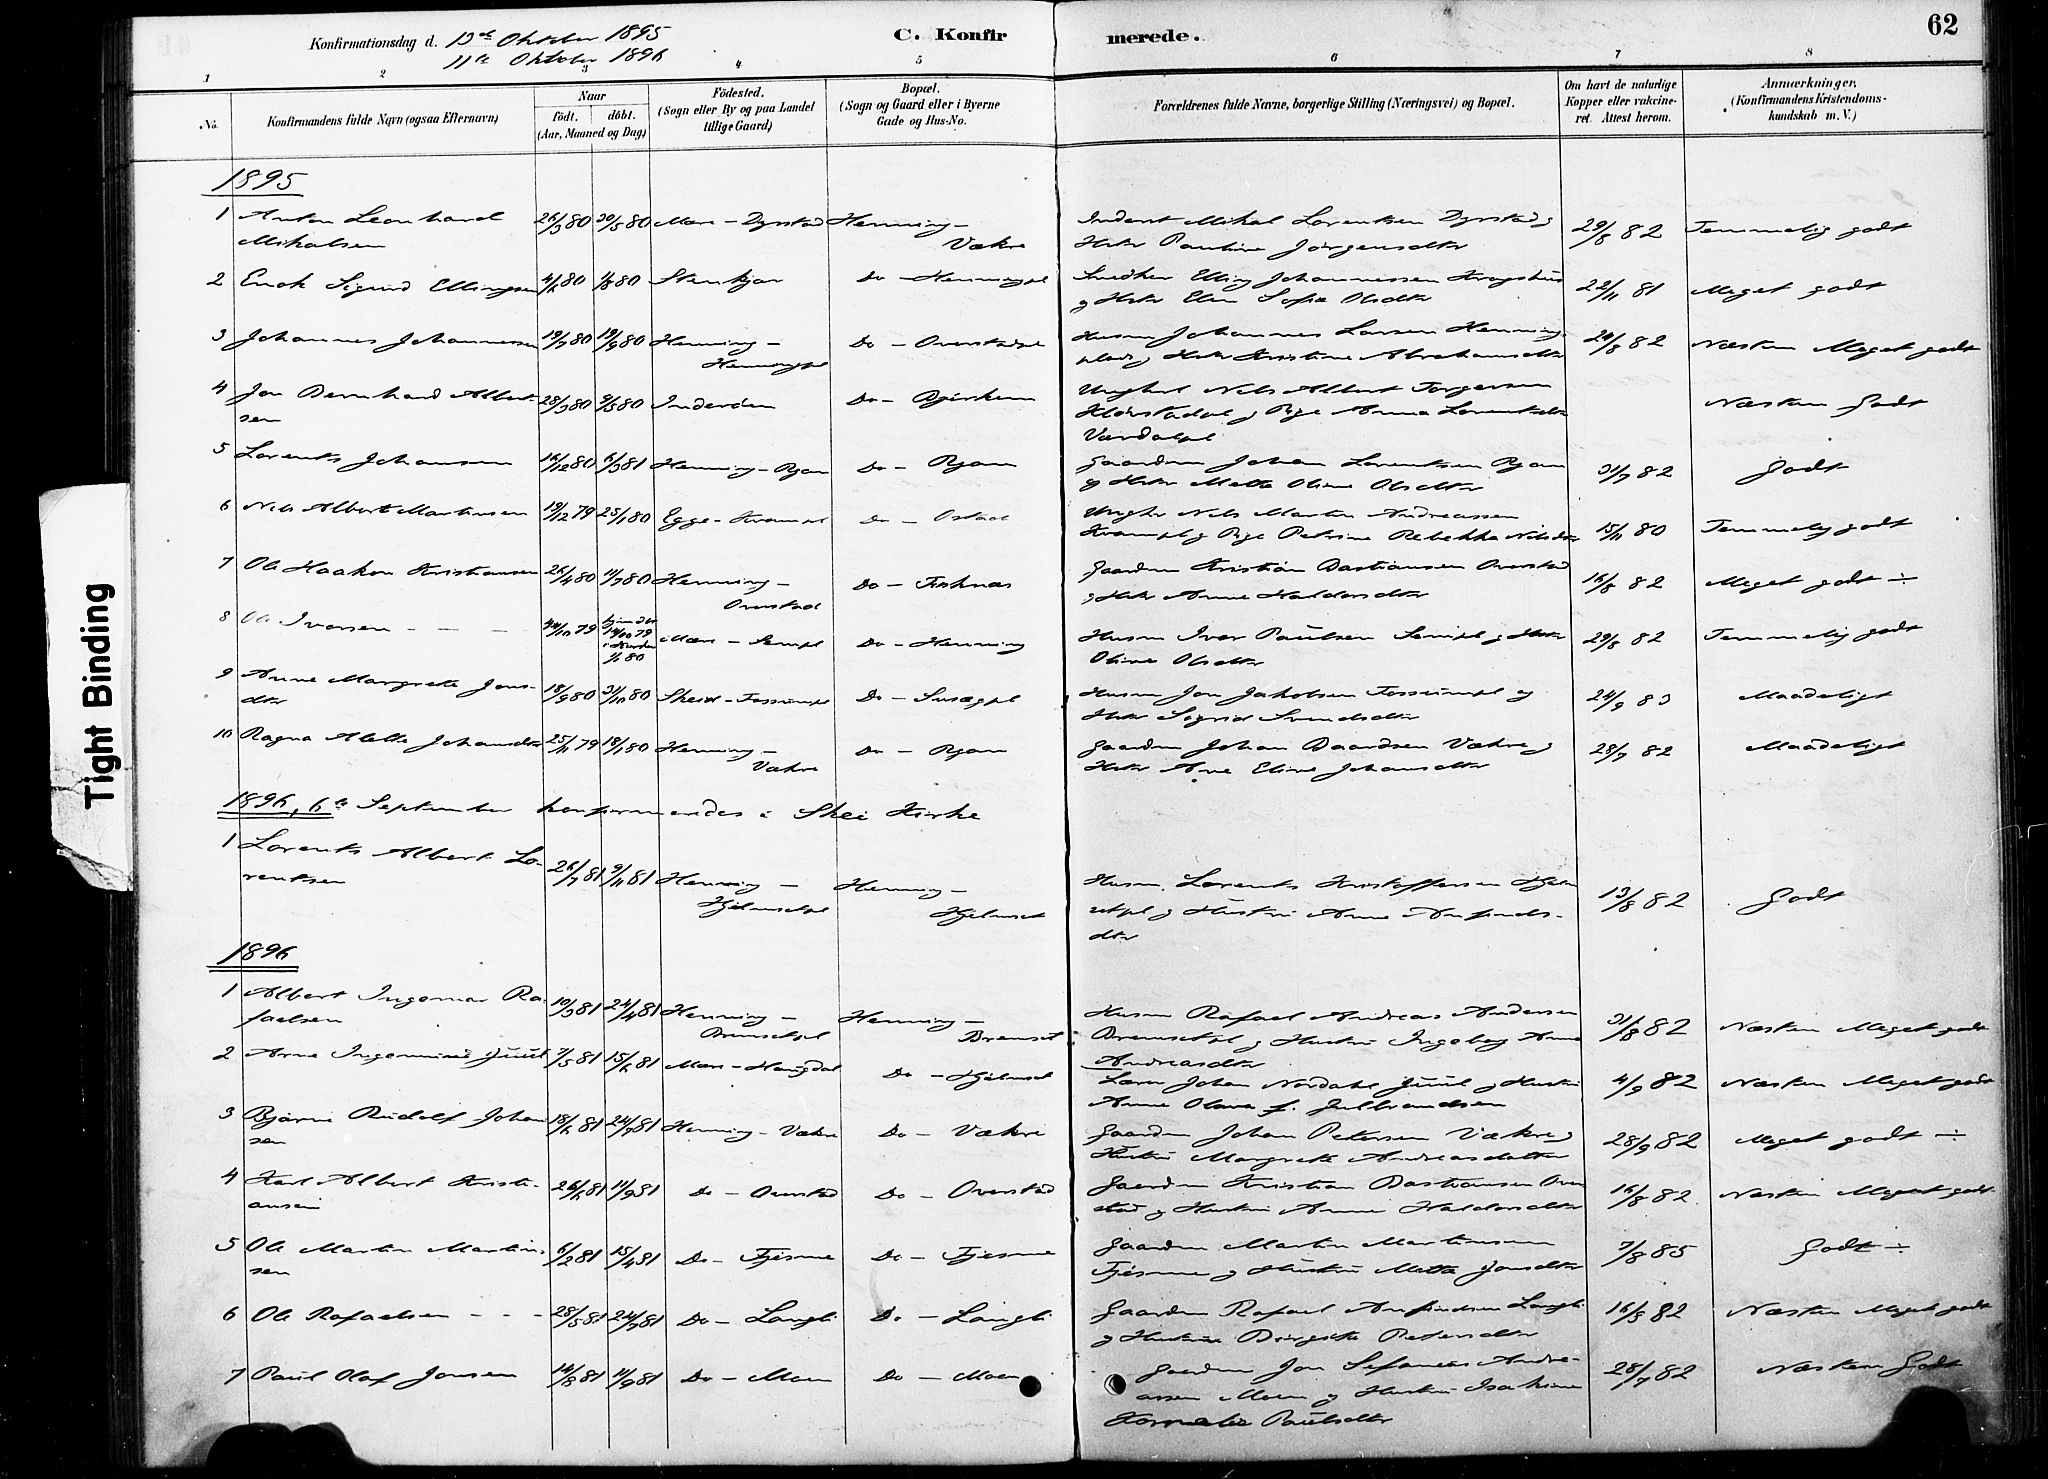 62
Konfirmationsdag d. 13de Oktober 1895
11te Oktober 1896
C. Konfirmerede.
1 2 3 4 5 6 7 8
No.
Konfirmandens fulde Navn (ogsaa Efternavn)
Naar
födt. döbt.
(Aar, Maaned og Dag)
Födested.
(Sogn eller By og paa Landet
tillige Gaard)
Bopæl.
(Sogn og Gaard eller i Byerne
Gade og Hus-No.
Forældrenes fulde Navne, borgerlige Stilling (Næringsvei) og Bopæl.
Om havt de naturlige
Kopper eller vakcine-
ret. Attest herom.
Anmærkninger,
(Konfirmandens Kristendoms-
kundskab m. V.)
Tight Binding
1895
1 Anton Leonhard 26/3 80 30/5 80 Mære - Dyrstad Henning - Inderst Mikal Lorentsen Dyrstad og 29/8 82 Temmelig godt
Mikalsen Vækre Hstr Pauline Jörgensdtr
2 Enok Sigurd Ellingsen 80 80 Stenkjær Do - Henningpl Snedker Elling Johannessen 22/11 81 Meget godt
og Hstr Elen Sofie Olsdtr
3 Johannes Johannessen 19/7 80 19/9 80 Henning - Do - Overstadpl Husm Johannes Larsen Henning- 24/8 82 Næsten Meget godt
Henningpl plads og Hstr Kristine Abrahamsdtr
4 Jon Bernhard Albert- 28/3 80 9/5 80 Inderöen Do - Bjerkem Ungkrl Nels Albert Torgersen Næsten Godt
sen og Pige Anna Lorentsdtr
Værdalspl
5 Lorents Johansen 16/12 80 6/3 81 Henning - Ryan Do - Ryan Gaardm Johan Lorentsen Ryan 31/7 82 Godt
og Hstr Mette Oline Olsdtr
6 Nels Albert Martinsen 19/12 79 25/1 80 Egge - Do - Østad Ungkr Nels Martin Andreassen 15/11 80 Temmelig godt
og Pige Petrine Rebekka Nilsdtr
7 Ole Haakon Kristiansen 26/4 80 11/7 80 Henning - Do - Fisknæs Gaardm Kristian Bastiansen Overstad 16/8 82 Meget godt ÷
Overstad og Hstr Anne Haldorsdtr
8 Ole Ivarsen - - - 79 1/1 80 Mære - Sempl Do - Henning Husm Iver Paulsen Sempl og Hstr 29/8 82 Temmelig godt
Oline Olsdtr
9 Anne Margrete Jons- 18/9 80 31/10 80 Skeid - Fossumpl Do - Husm Jon Jakobsen Fossumpl og 24/9 83 Maadeligt
dtr Hstr Sigrid Svendsdtr
10 Ragna Alette Johansdtr 25/11 79 18/1 80 Henning - Do - Ryan Gaardm Johan Baardsen Vækre og 28/7 82 Maadeligt
Vækre Hstr Ane Eline Johansdtr
1896, 6te September konfirmeredes i Skei Kirke
1 Lorents Albert Lo- 26/7 81 9/11 81 Henning - Henning - Husm. Lorents Kristoffersen Hjelm- 13/8 82 Godt
rentsen Hjelmsetpl Hjelmset setpl og Hustru Anne Arnfinds-
dtr
1896
1 Albert Ingemar Ra- 10/3 81 24/4 81 Henning - Henning - Husm Rafael Andreas Andersen 31/8 82 Næsten Meget godt
faelsen Bremsetpl Bremset Bremsetpl og Hustru Ingeborg Anna
Andreasdtr
2 Arne Juul 7/5 81 81 Mære - Haugdal Do - Hjelmset Lærer Johan Nordahl Juul og Hustru 4/9 82 Næsten Meget godt
Anne Olava f. Gulbrandsen
3 Bjarne Rudolf Johan- 81 24/7 81 Henning - Vækre Do - Vækre Gaardm Johan Petersen Vækre og 28/9 82 Meget godt ÷
sen Hustru Margrete Andreasdatter
4 Karl Albert Kristi- 81 11/9 81 Do - Overstad Do - Overstad Gaardm Kristian Bastiansen Over- 16/8 82 Næsten Meget godt
ansen stad og Hustru Anne Haldorsdtr
5 Ole Martin Martin- 6/2 81 15/4 81 Do - Fjesme Do - Fjesme Gaardm Martin Martinsen 7/8 85 Godt ÷
sen Fjesme og Hustru Mette Jonsdtr
6 Ole Rafaelsen - - - 28/5 81 24/7 81 Do - Langli Do - Langli Gaardm Rafael Arnfindsen Langli 16/8 82 Næsten Meget godt
og Hustru Birgitte Petersdtr
7 Paul Olaf Jonsen 14/8 81 11/9 81 Do - Moen Do - Moen Gaardm Jon Sefanias Andre- 28/7 82 Næsten Godt
assen Moen og Hustru Isakine
Kornelie Paulsdtr